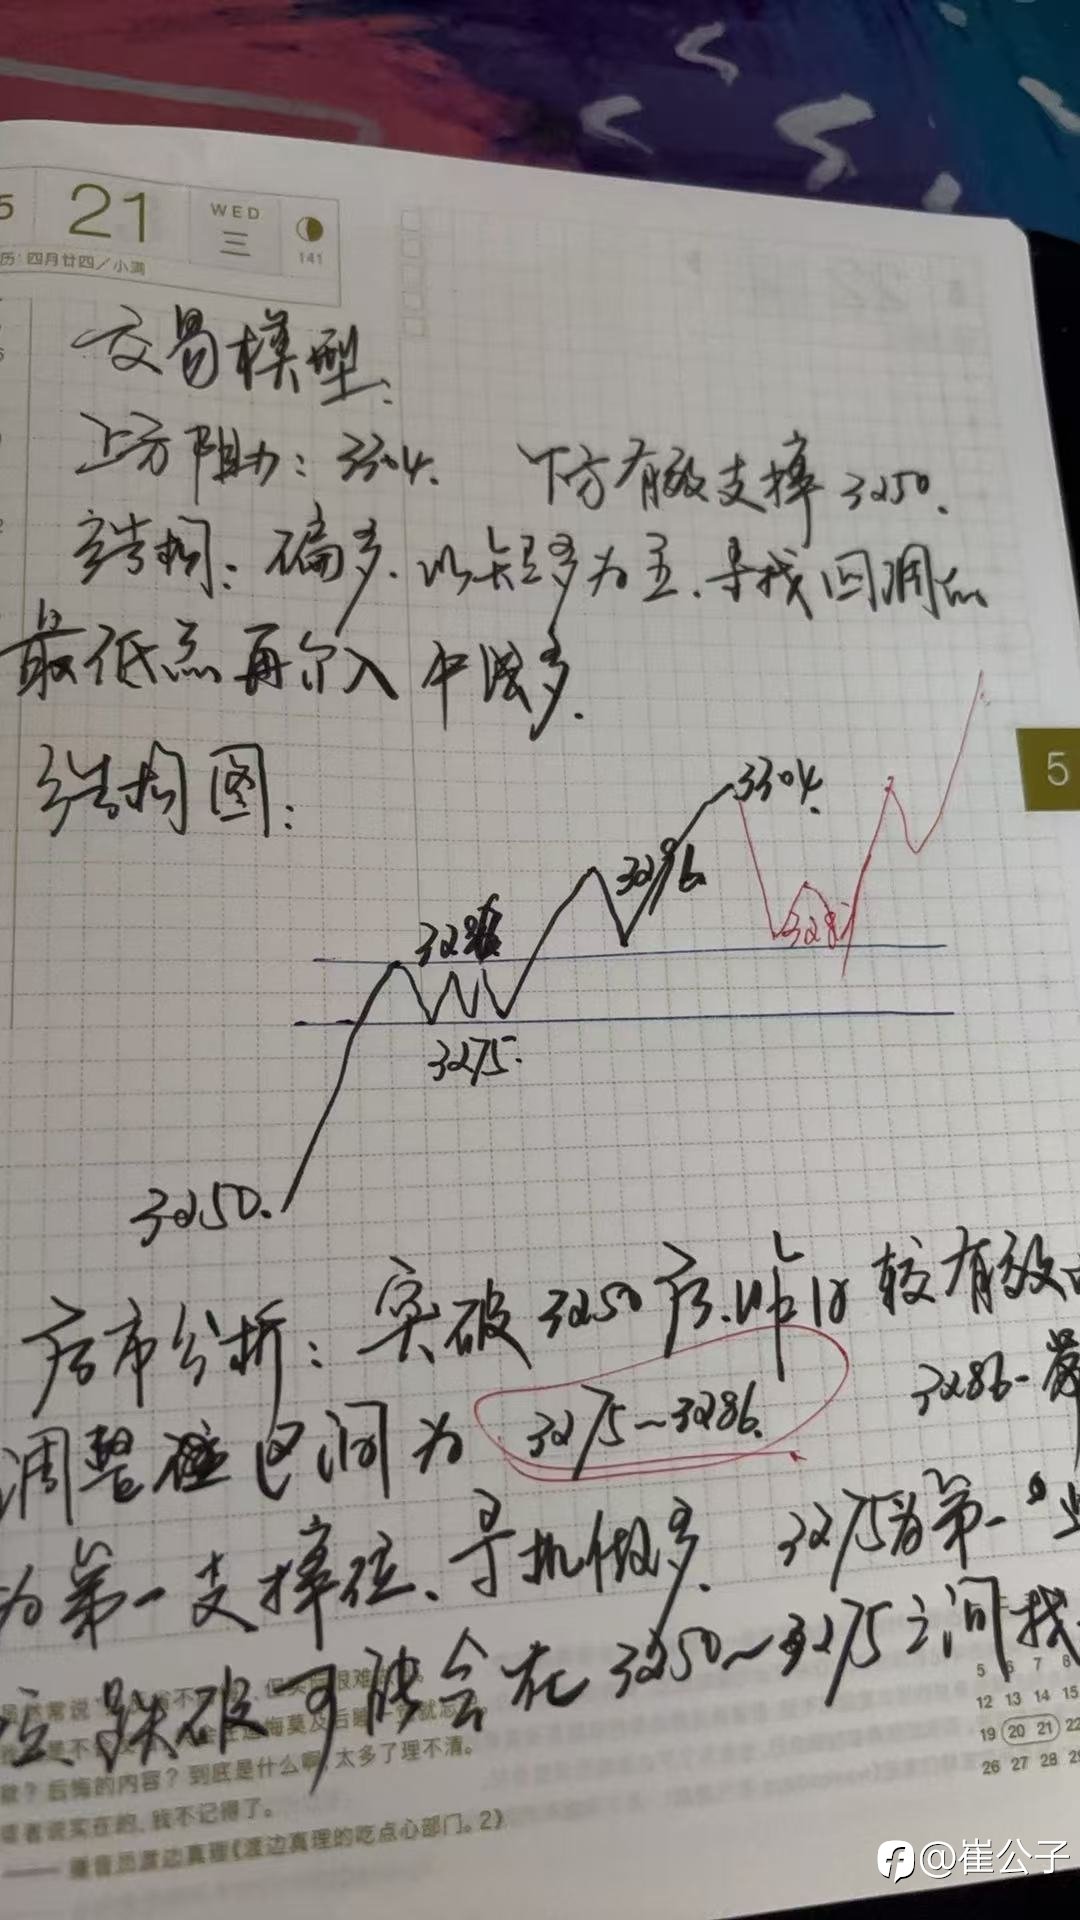 5 21 WED 三 141
历：四月廿四／小满
交易模型：
上方阻力：3304. 下方有效支撑3250.
结构：偏多.以短多为主.寻找回调的
最低点再介入中线多.
结构图：
3304.
3296
328
3286
3275.
3250.
5
后市分析：突破3250后.昨日较有效的
调整 区间为 3275~3286.
3286-
为第一支撑位、寻机做多. 3275为第一
位.跌破可能会在3250~3275之间找
5 6 7 8
12 13 14 15
19 20 21 22
26 27 28 29
歉？后悔的内容？到底是什么啊，太多了理不清。
实在的，我不记得了。
渡边真理《渡边真理的吃点心部门。2》
@崔公子